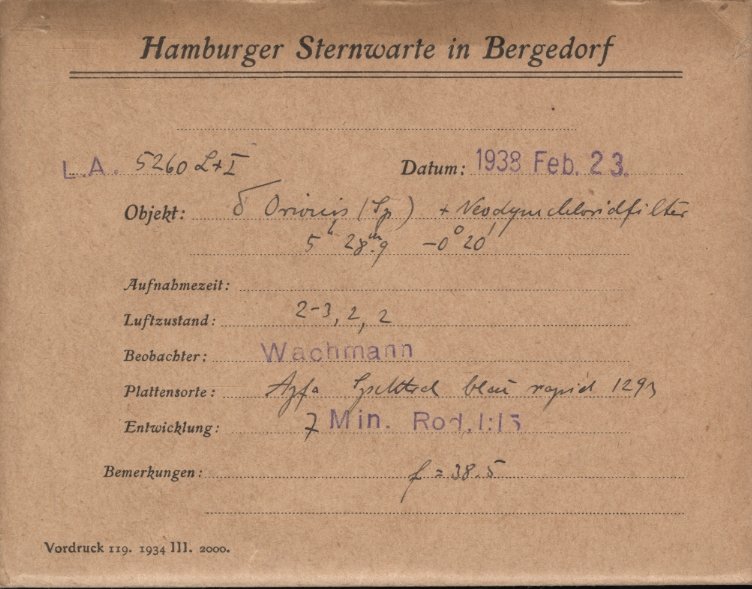 Hamburger Sternwarte in Bergedorf
L.A. 5260 L+I Datum: 1938 Feb. 23.
Objekt: δ Orionis (Sp) + Neodymchloridfilter
5h 28m.9 -0° 20'
Aufnahmezeit:
Luftzustand: 2-3, 2, 2
Beobachter: Wachmann
Plattensorte: Agfa Spektral blau rapid
Entwicklung: 7 Min. Rod. 1:15
Bemerkungen: f = 38.5
Vordruck 119. 1934 III. 2000.